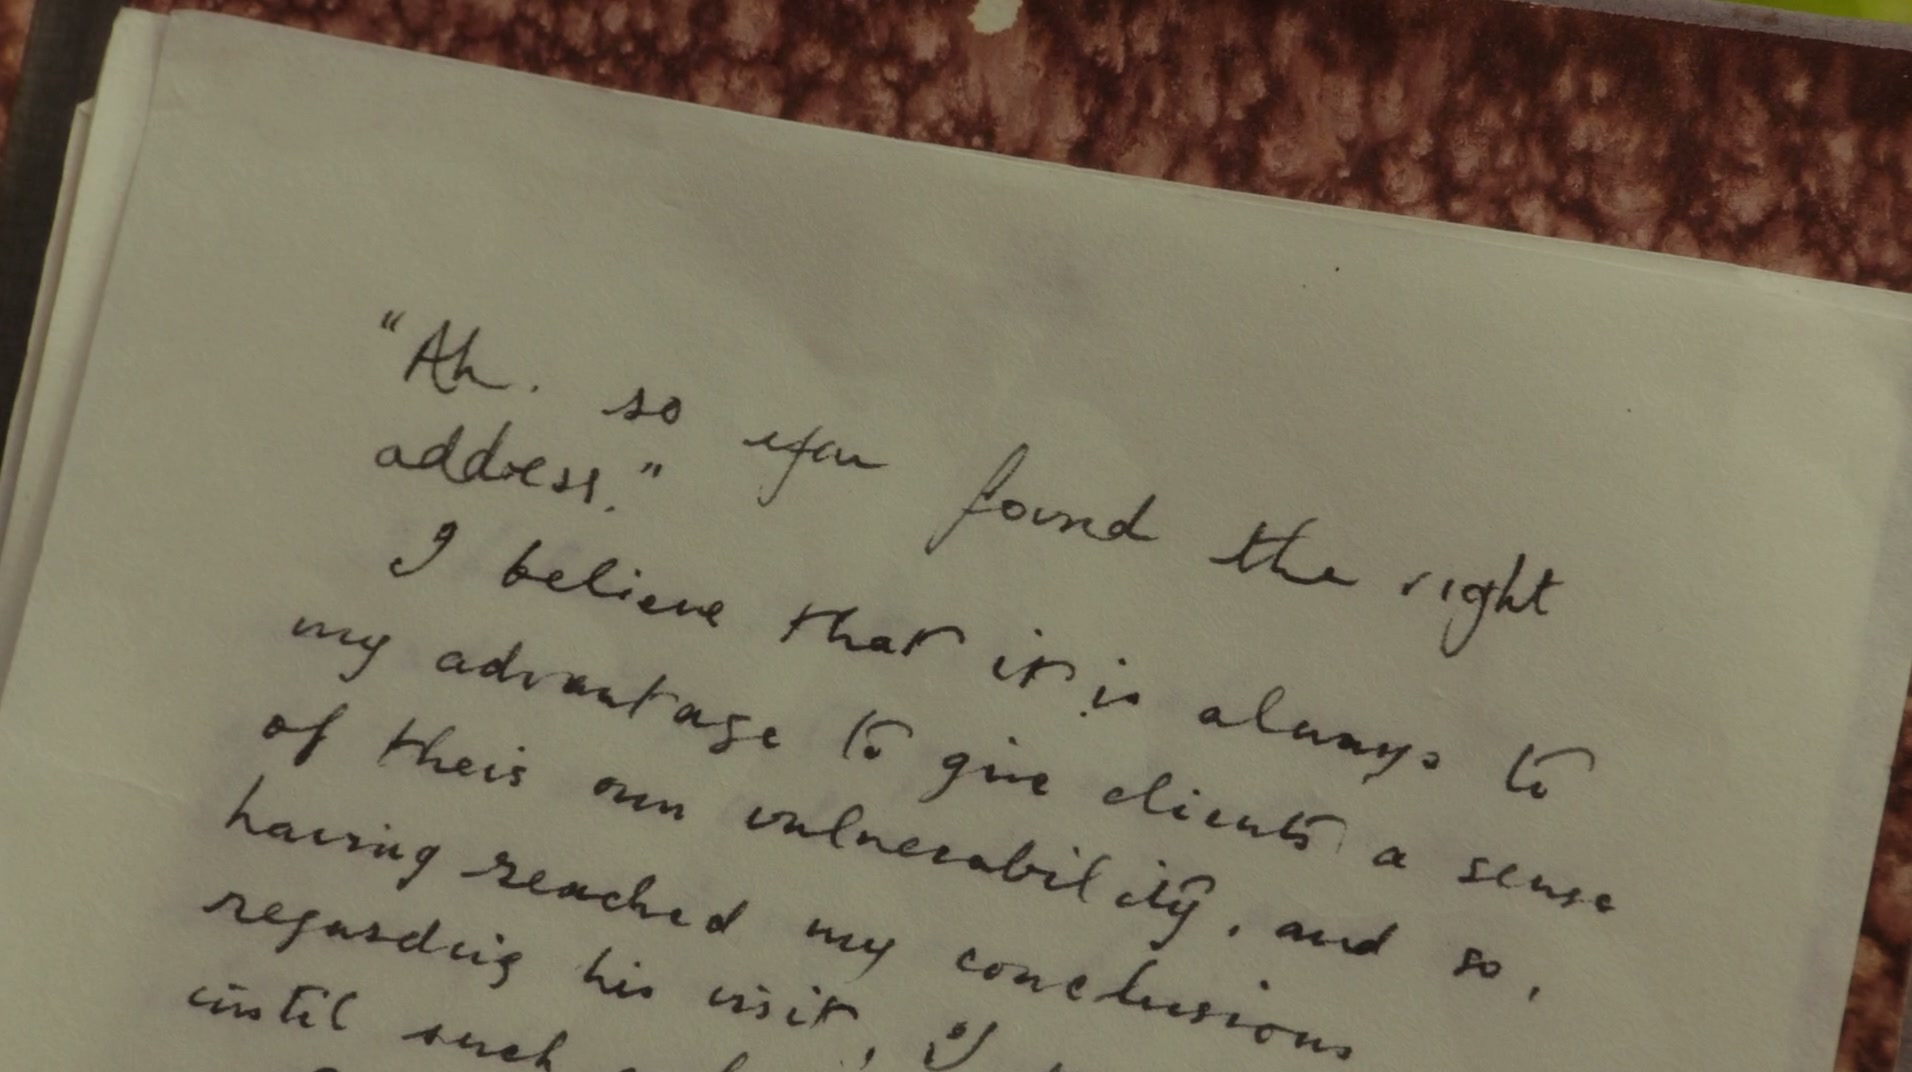 "Ah. so you found the right
address."
I believe that it is always to
my advantage to give clients a sense
of their own vulnerability, and so,
having reached my conclusions
regarding his visit, I
until such